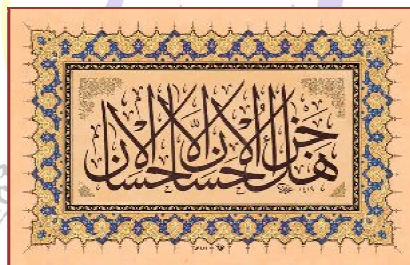 هل جزاء الإحسان إلا الإحسان